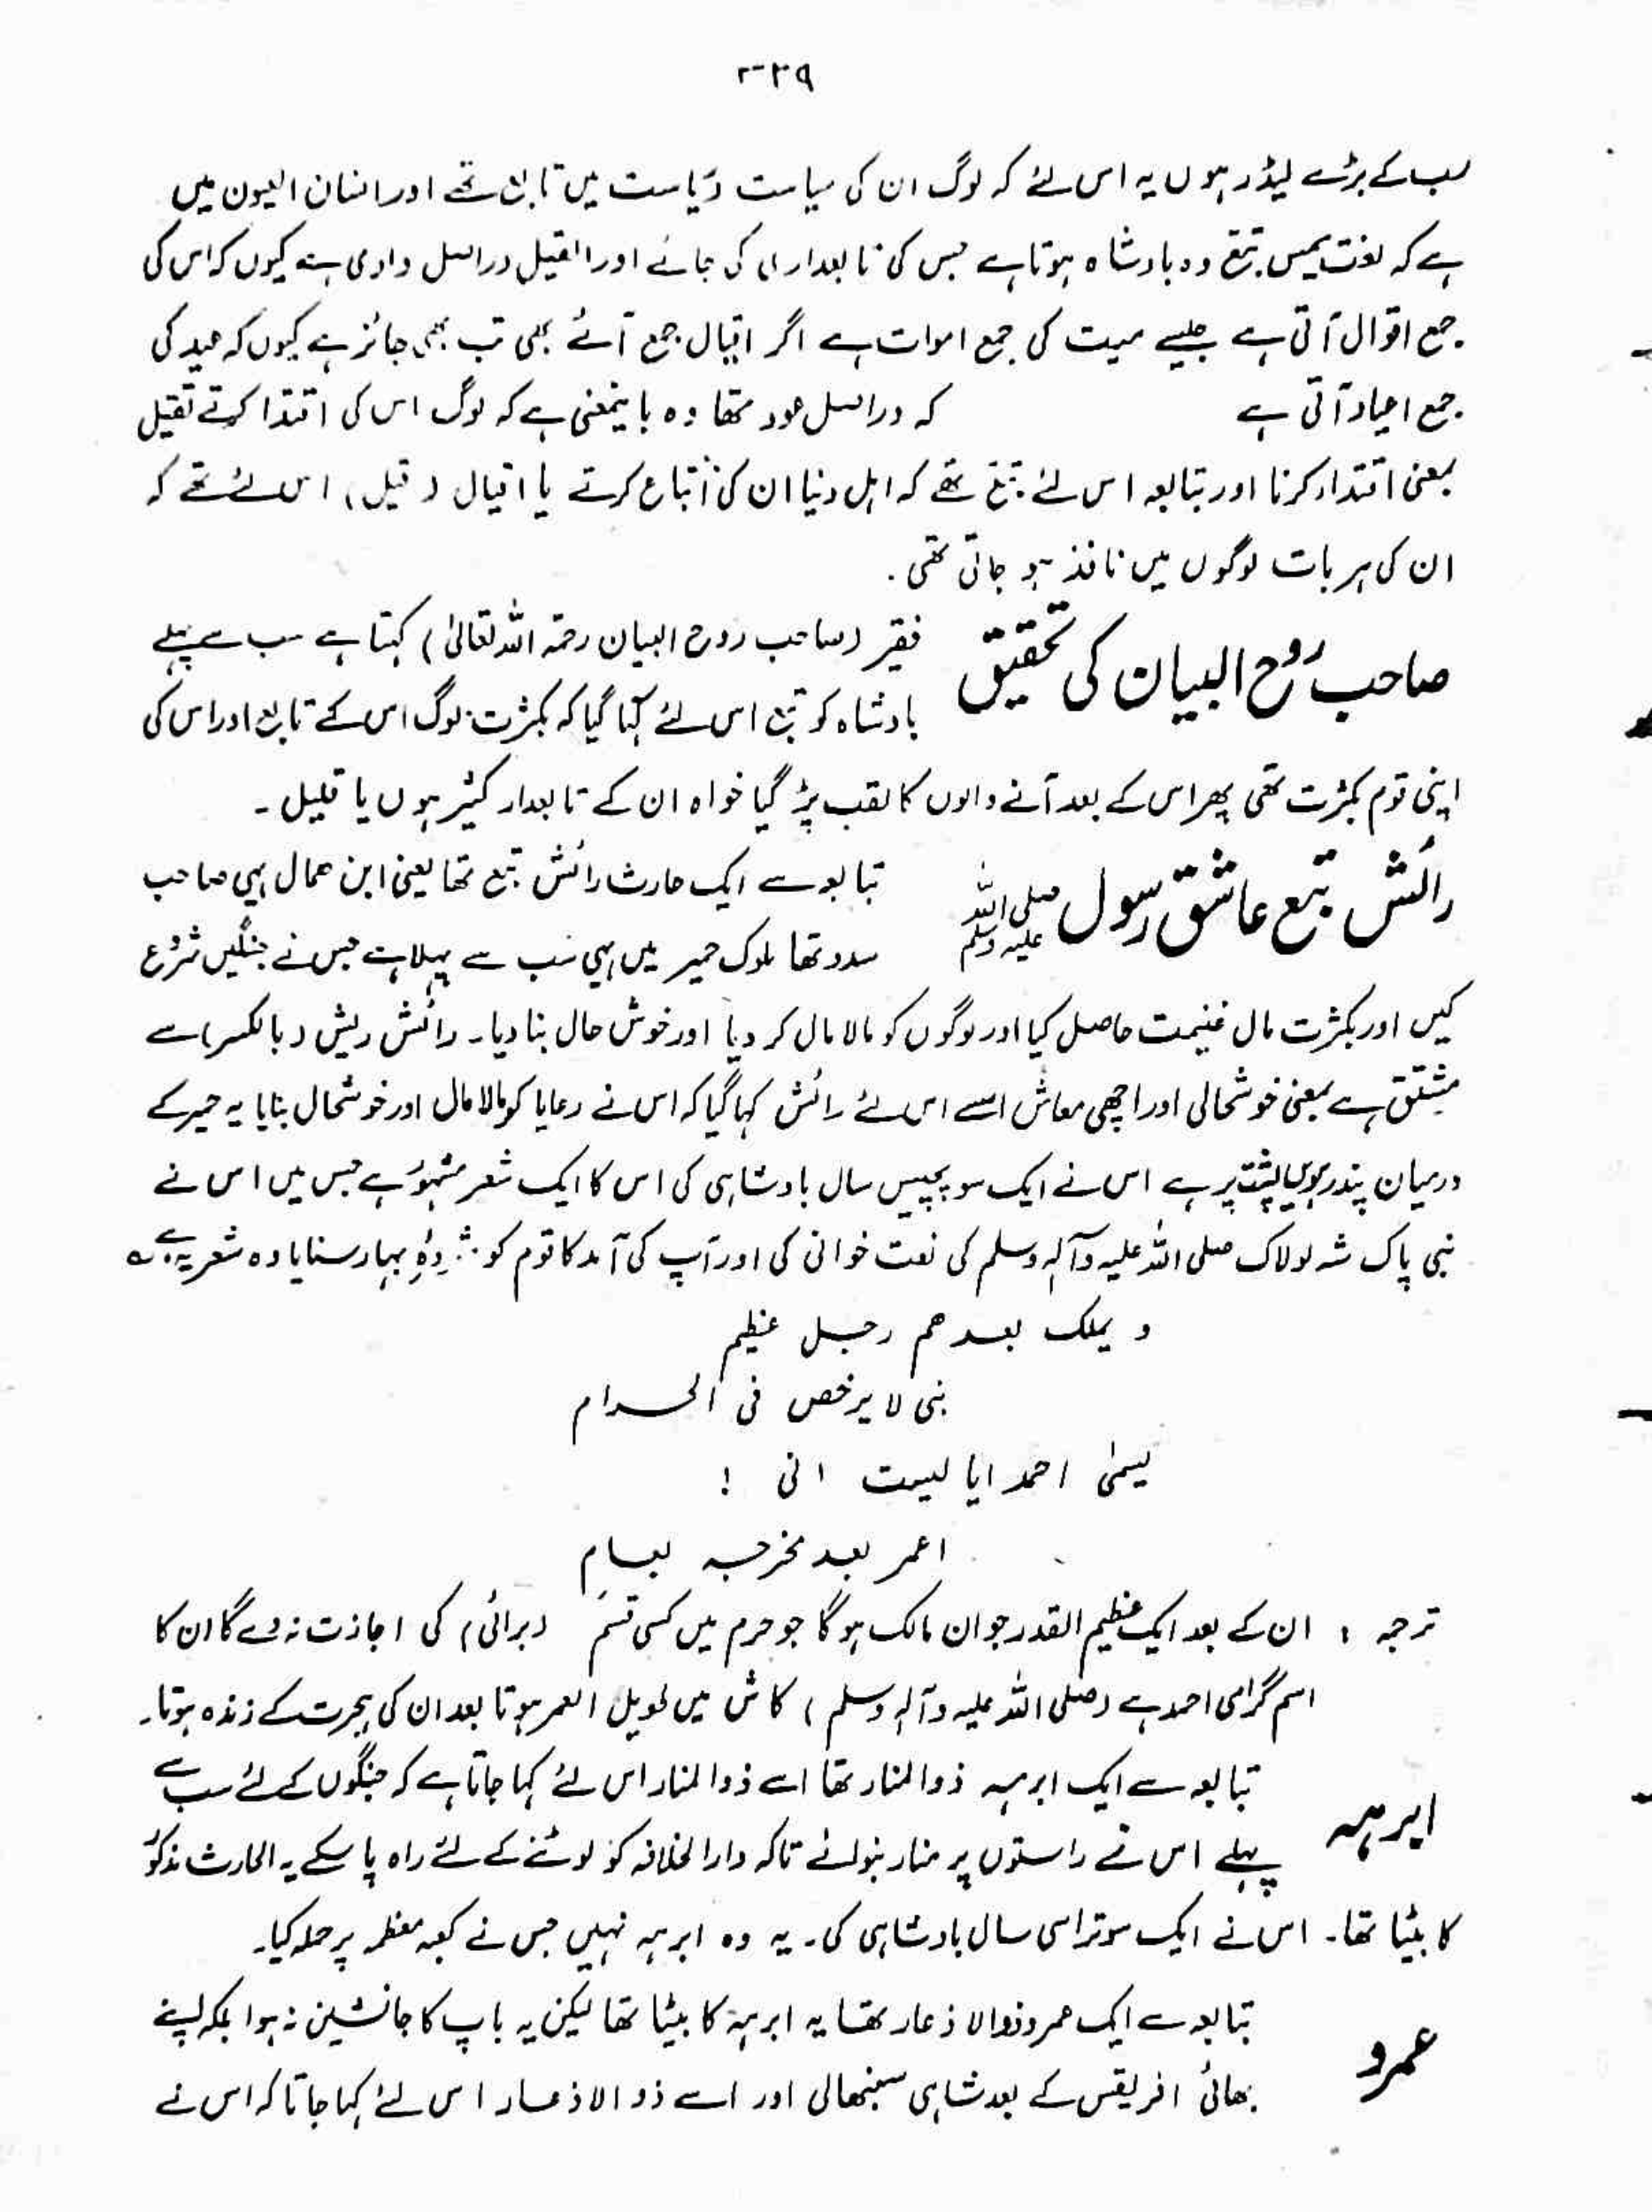 ۳۲۹
سب کے بڑے لیڈر ہوں یہ اس لئے کہ لوگ ان کی سیاست ریاست میں تابع تھے اور انسان العیون میں
ہے کہ لغت یمن میں تبع وہ بادشاہ ہوتا ہے جس کی تابعداری کی جائے اور القیل دراصل وادی ہے کیوں کہ اس کی
جمع اقوال آتی ہے جیسے میت کی جمع اموات ہے اگر اقیال جمع آئے بھی تب بھی جائز ہے کیوں کہ عید کی
جمع اعیاد آتی ہے کہ دراصل عود تھا وہ بایمعنی ہے کہ لوگ اس کی اقتدا کرتے تقیل
بمعنی اقتداء کرنا اور تبابعہ اس لئے تبع تھے کہ اہل دنیا ان کی اتباع کرتے یا اقیال (قیل) اس لئے تھے کہ
ان کی ہر بات لوگوں میں نافذ ہو جاتی تھی۔
صاحب روح البیان کی تحقیق
فقیر (صاحب روح البیان رحمۃ اللہ تعالیٰ) کہتا ہے سب سے پہلے
بادشاہ کو تبع اس لئے کہا گیا کہ بکثرت لوگ اس کے تابع اور اس کی
اپنی قوم بکثرت تھی پھر اس کے بعد آنے والوں کا لقب پڑ گیا خواہ ان کے تابعدار کثیر ہوں یا قلیل۔
رائش تبع عاشق رسول صلی اللہ علیہ وسلم
تبابعہ سے ایک حارث رائش تبع تھا یعنی ابن ہمال یہی صاحب
سدد تھا ملوک حمیر میں یہی سب سے پہلا ہے جس نے جنگیں شروع
کیں اور بکثرت مال غنیمت حاصل کیا اور لوگوں کو مالا مال کر دیا اور خوش حال بنا دیا۔ رائش ریش (بالکسر) سے
مشتق ہے بمعنی خوشحالی اور اچھی معاش اسے اس لئے رائش کہا گیا کہ اس نے رعایا کو مالا مال اور خوشحال بنایا یہ حمیر کے
درمیان پندرہویں پشت پر ہے اس نے ایک سو پچیس سال بادشاہی کی اس کا ایک شعر مشہور ہے جس میں اس نے
نبی پاک شہ لولاک صلی اللہ علیہ وآلہ وسلم کی نعت خوانی کی اور آپ کی آمد کا قوم کو مژدۂ بہار سنایا وہ شعر یہ ہے؎
و یملک بعدھم رجل عظیم
نبی لا یرخص فی الحرام
یسمٰی احمد ایا لیت انی !
اعمر بعد مخرجہ بعام
ترجمہ : ان کے بعد ایک عظیم القدر جوان مالک ہوگا جو حرم میں کسی قسم (برائی) کی اجازت نہ دے گا ان کا
اسم گرامی احمد ہے (صلی اللہ علیہ وآلہ وسلم) کاش میں طویل العمر ہوتا بعد ان کی ہجرت کے زندہ ہوتا۔
ابرہہ
تبابعہ سے ایک ابرہہ ذوالمنار تھا اسے ذوالمنار اس لئے کہا جاتا ہے کہ جنگوں کے لئے سب سے
پہلے اس نے راستوں پر منار بنوائے تاکہ دارالخلافہ کو لوٹنے کے لئے راہ پا سکے یہ الحارث مذکور
کا بیٹا تھا۔ اس نے ایک سو تراسی سال بادشاہی کی۔ یہ وہ ابرہہ نہیں جس نے کعبہ معظمہ پر حملہ کیا۔
عمرو
تبابعہ سے ایک عمرو ذوالاذعار تھا یہ ابرہہ کا بیٹا تھا لیکن یہ باپ کا جانشین نہ ہوا بلکہ اپنے
بھائی افریقس کے بعد شاہی سنبھالی اور اسے ذوالاذعار اس لئے کہا جاتا کہ اس نے